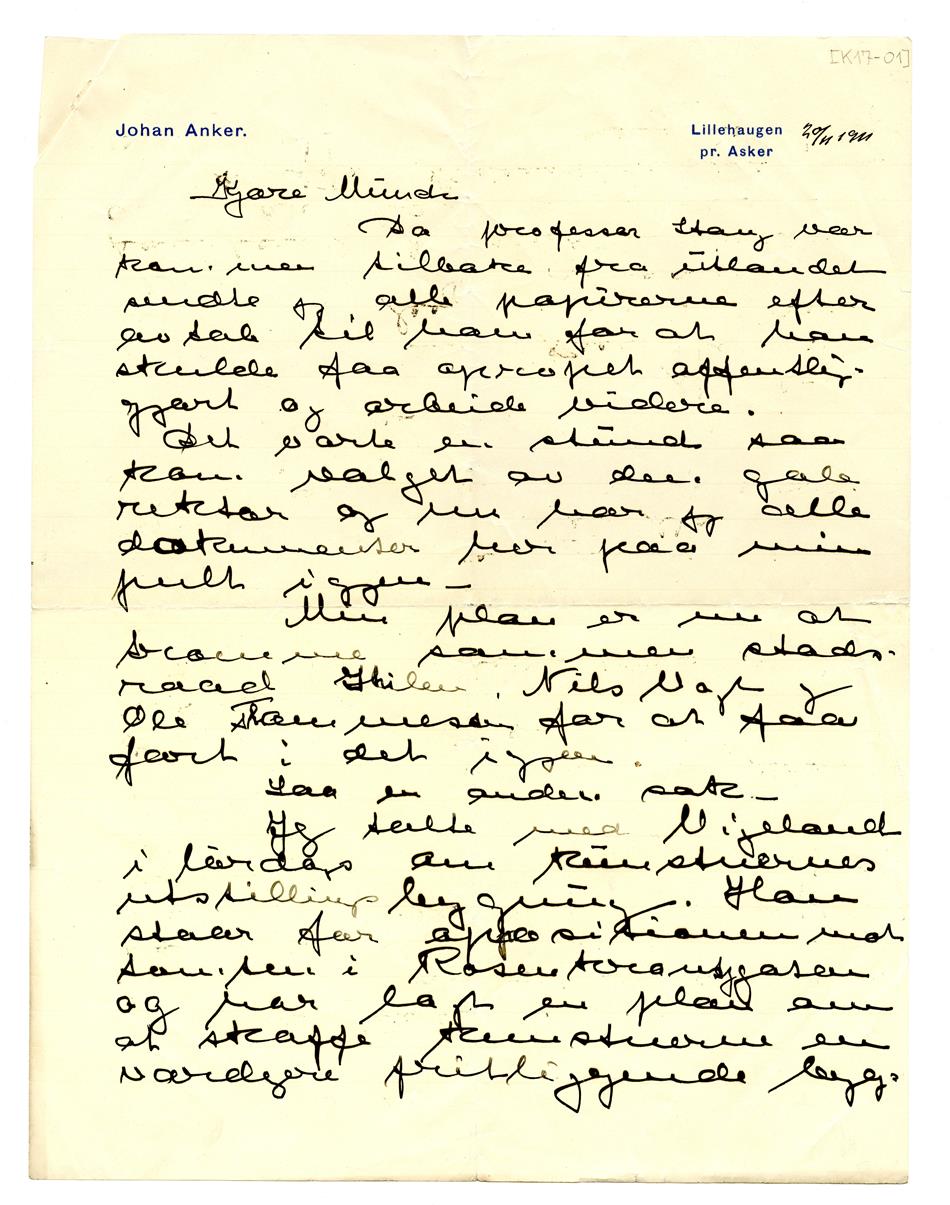 [K17-01]
Johan Anker.
Lillehaugen 20/11 1911
pr. Asker
Kjære Munch
Da professor Stang var
kommen tilbake fra utlandet
sendte jeg alle papirerne efter
avtale til ham for at han
skulde faa opropet offentlig-
gjort og arbeide videre.
Det varte en stund saa
kom valget av den gale
rektor og nu har jeg alle
dokumenter her paa min
pult igjen –
Min plan er nu at
tromme sammen stads-
raad Thilen, Nils Vogt og
Ole Thommessen for at faa
fart i det igjen.
Saa en anden sak –
Jeg talte med Vigeland
i lørdags om kunstnernes
utstillingsbygning. Han
staar for oppositionen mot
tomten i Rosenkrantzgaten
og har lagt en plan om
at skaffe kunstnerne en
værdigere fritliggende byg-